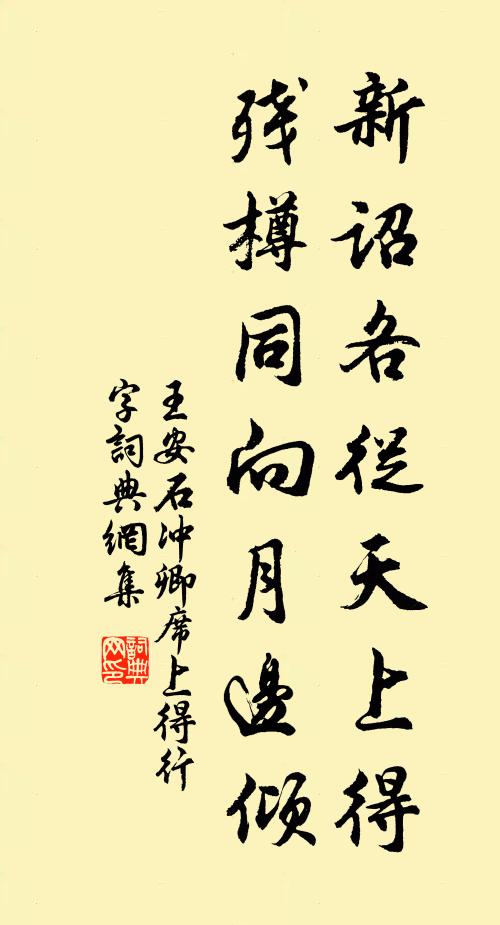 新詔各從天上得
殘樽同向月邊傾
王安石冲卿席上得行
字詞典網集
詞典網印